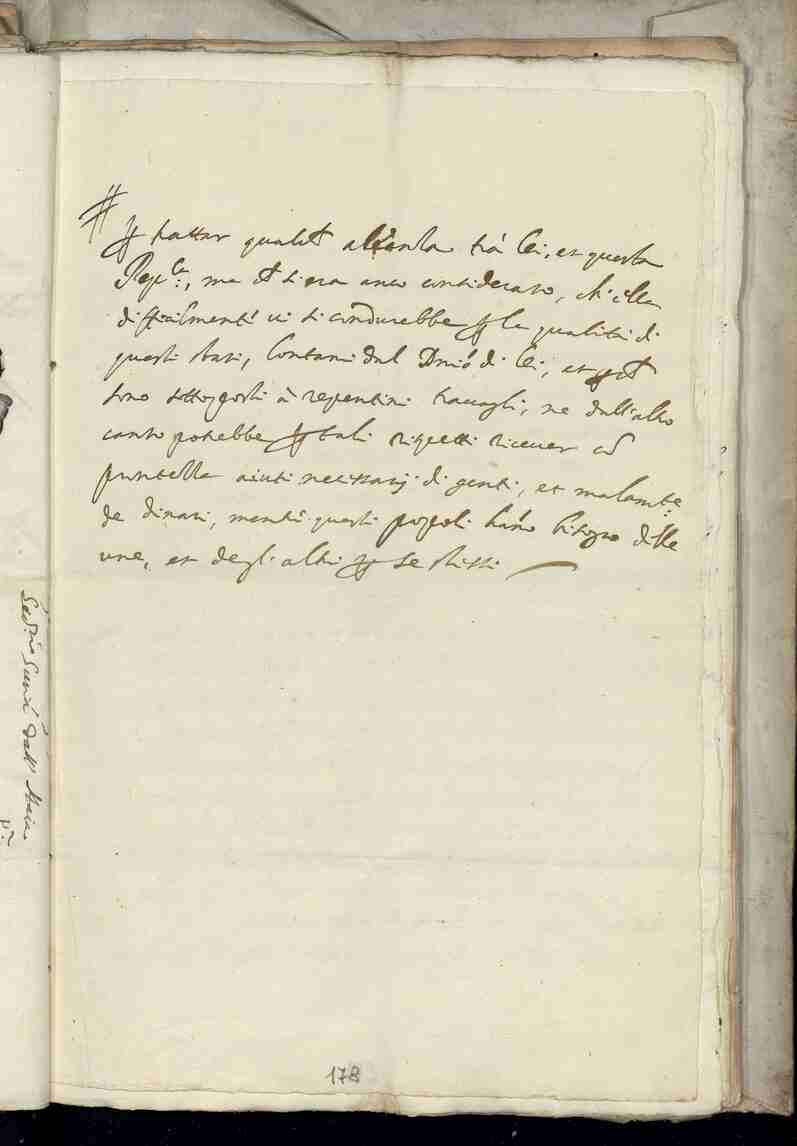 #
trattar qualche alleanza trà lei, et questa
Repca:, ma che si era anco considerato, ch'ella
difficilmente vi si condurebbe per la qualità di
questi stati, lontani dal Dnio di lei, et perche
sono sottoposti à repentini travagli, ne dall'altro
canto potrebbe per tali rispetti ricever da
quella aiuti necessarij di genti, et malamte:
de dinari, mentre questi popoli hano bisogno delle
une, et degli altri per se stessi
178
dall'